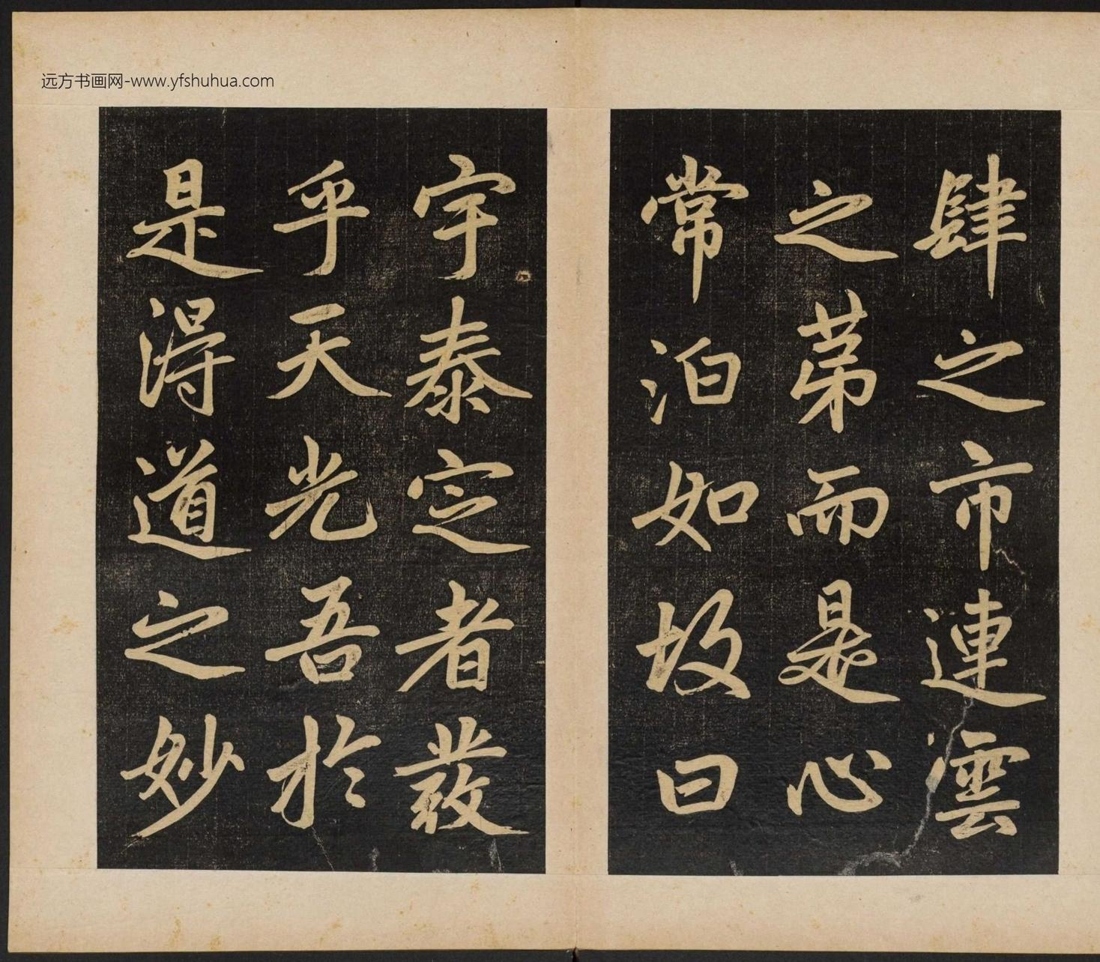 远方书画网-www.yfshuhua.com
肆之市連雲
之苐而是心
常泊如故曰
宇泰定者發
乎天光吾於
是得道之妙